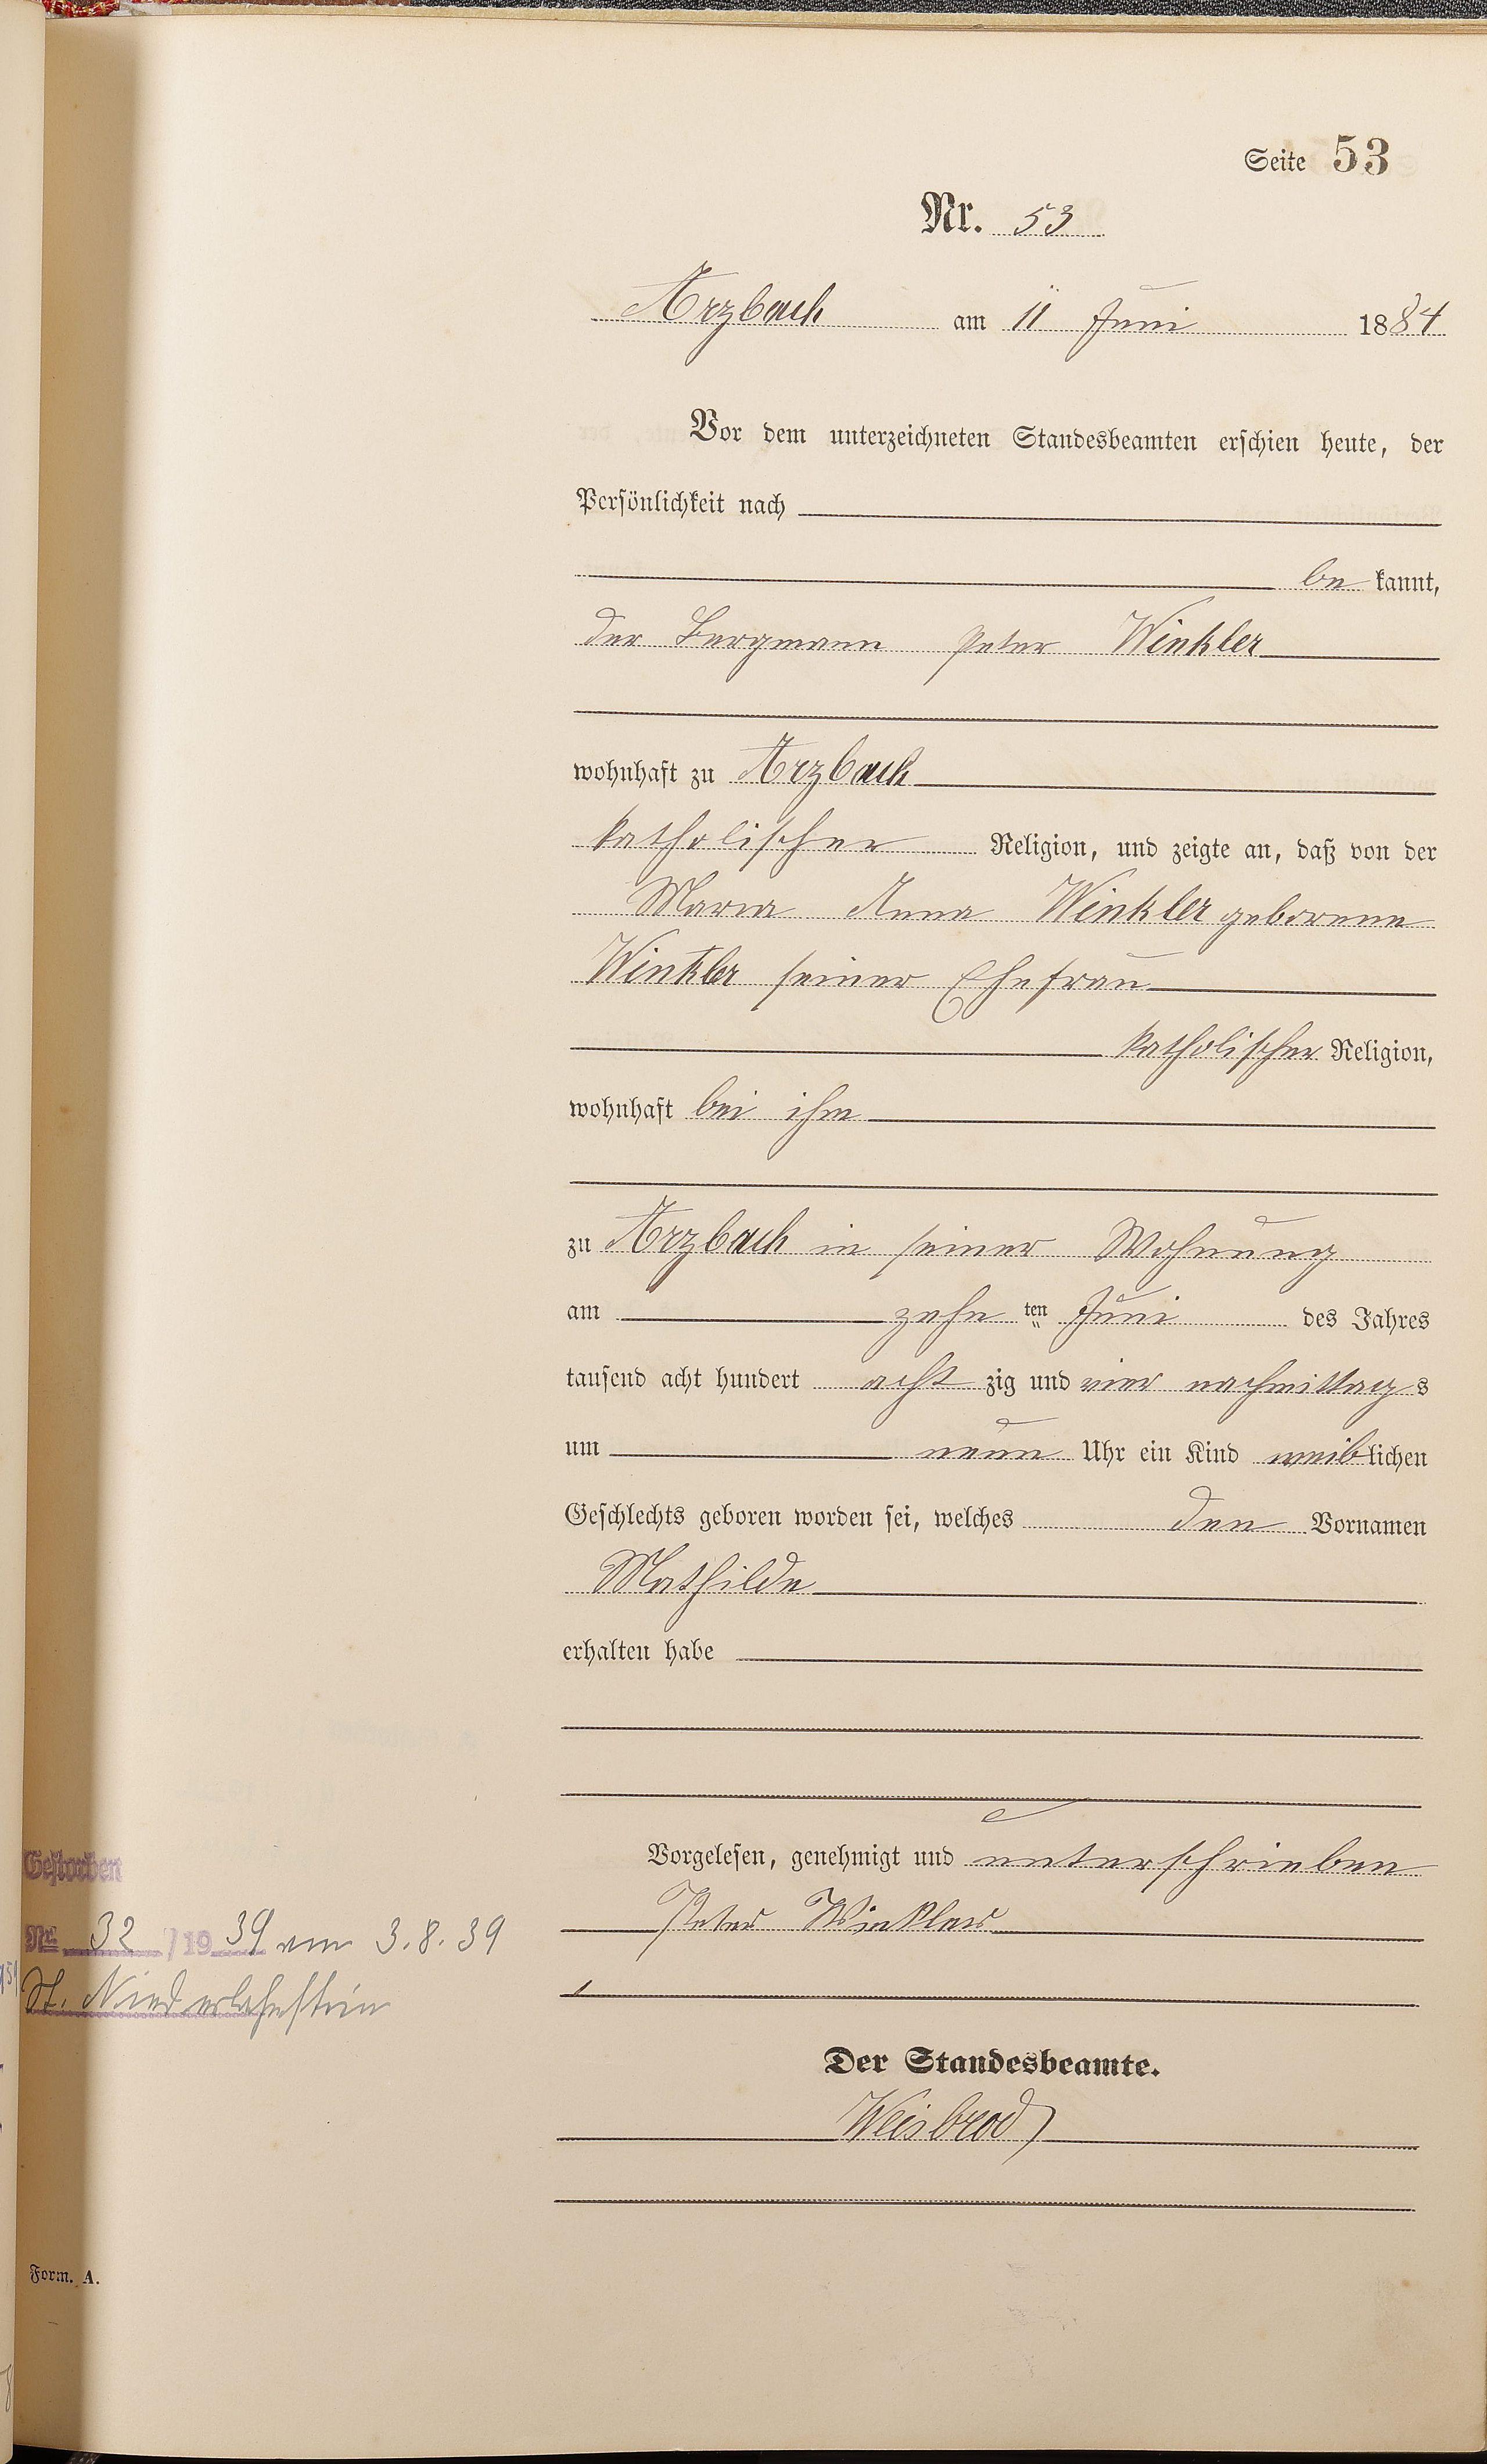 Seite 53
Nr. 53
Arzbach am 11 Juni 1884
Vor dem unterzeichneten Standesbeamten erschien heute, der
Persönlichkeit nach
bekannt,
der Bergmann Peter Winkler
wohnhaft zu Arzbach
katholischer Religion, und zeigte an, daß von der
Maria Anna Winkler geborene
Winkler seiner Ehefrau
katholischer Religion,
wohnhaft bei ihm
zu Arzbach in seiner Wohnung
am zehnten Juni des Jahres
tausend acht hundert achtzig und vier nachmittags
um neun Uhr ein Kind weiblichen
Geschlechts geboren worden sei, welches den Vornamen
Mathilde
erhalten habe
Vorgelesen, genehmigt und unterschrieben
Peter Winkler
Der Standesbeamte.
Weisbrod
Gestorben
Nr. 32/1939 vom 3.8.39
St. Niederlahnstein
Form. A.